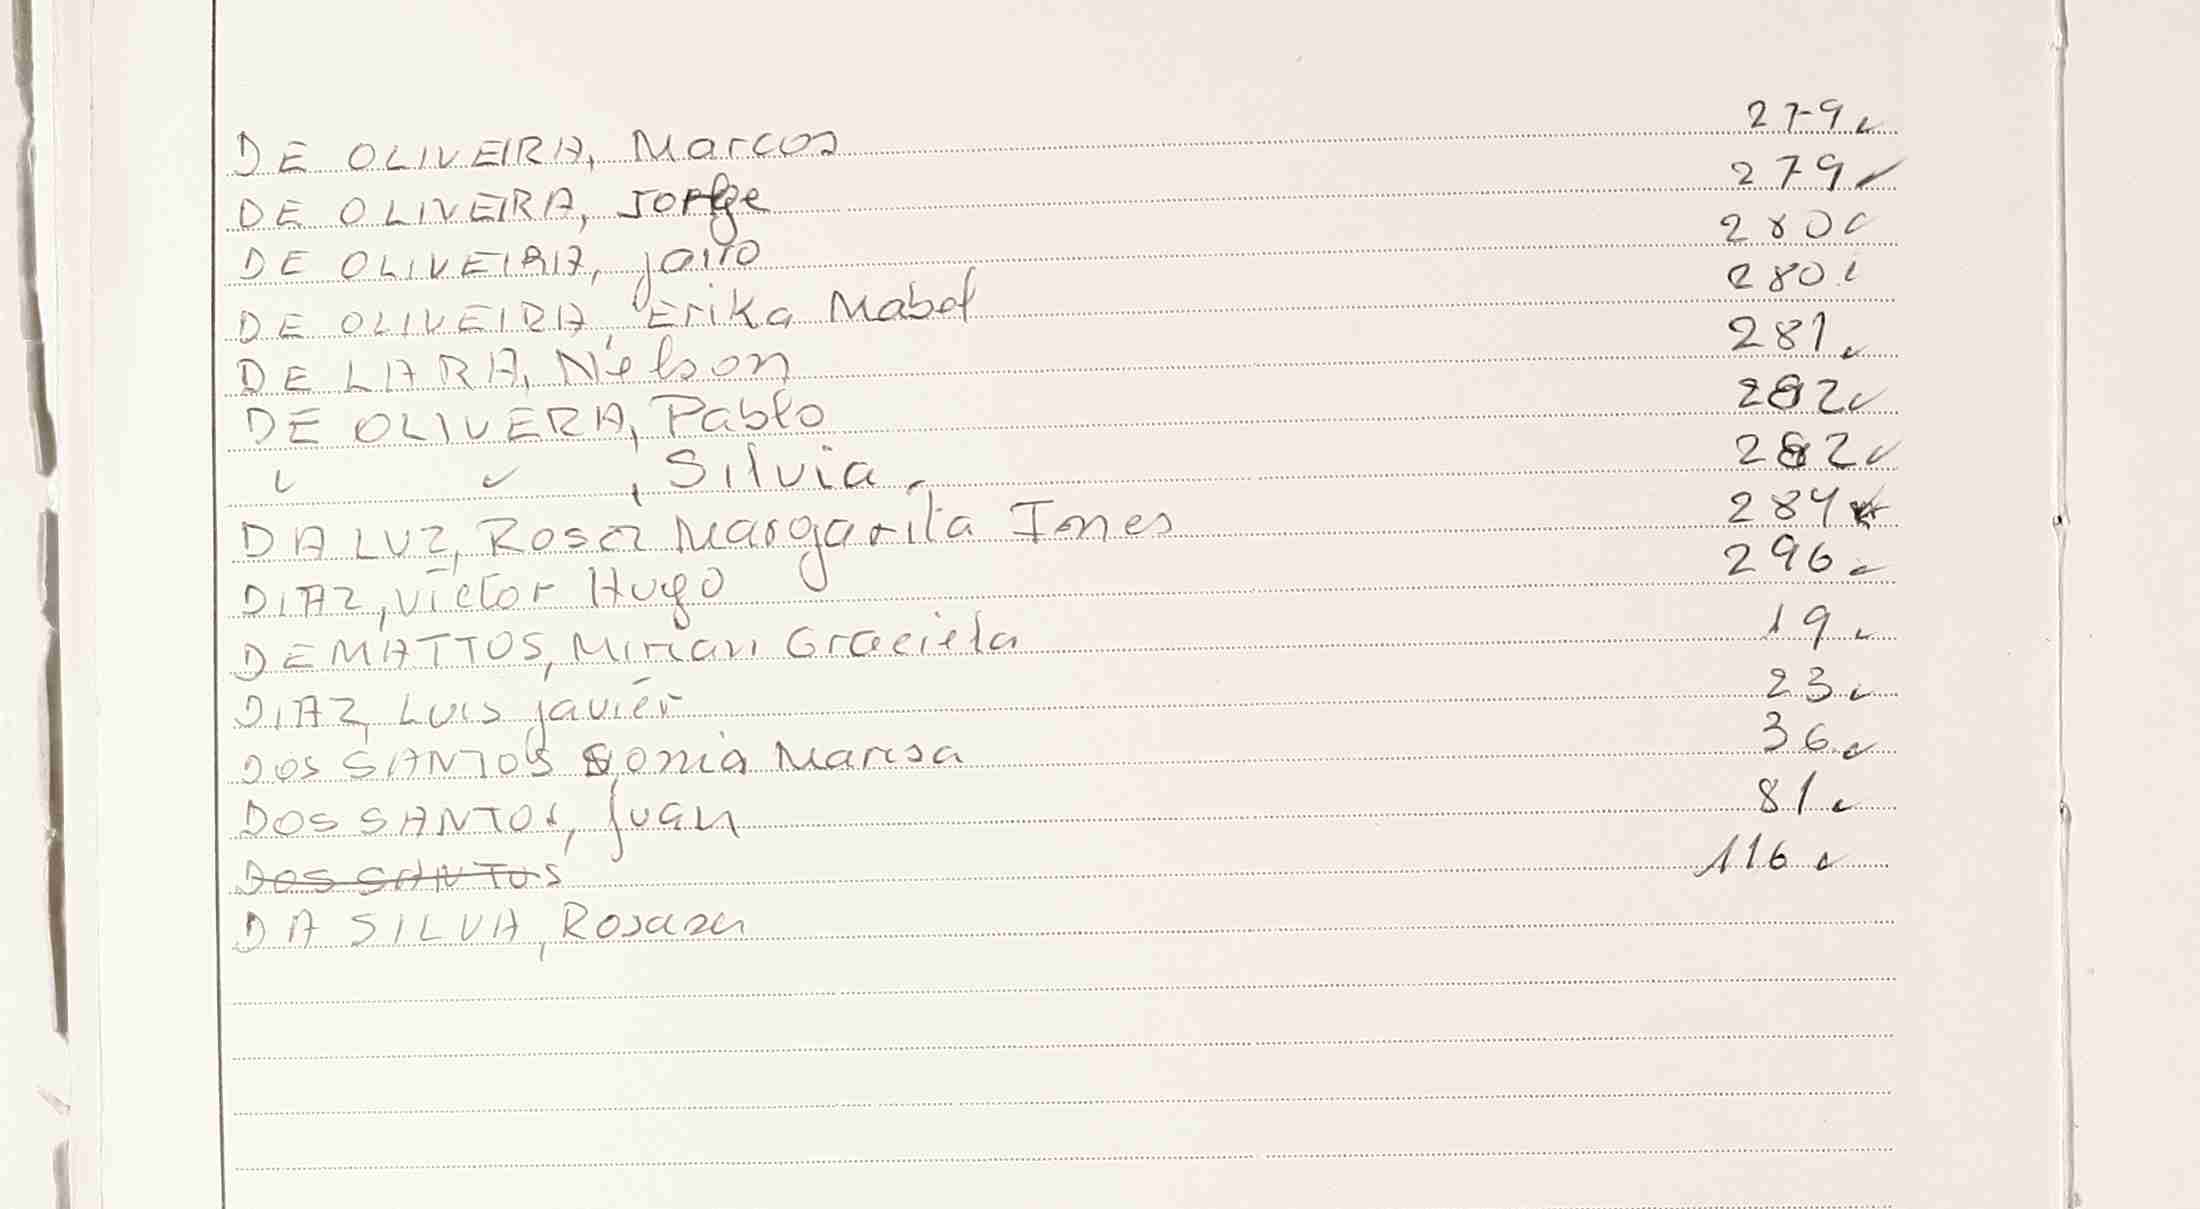 DE OLIVEIRA, Marcos 279 ✓
DE OLIVEIRA, Jorge 279 ✓
DE OLIVEIRA, jairo 280 ✓
DE OLIVEIRA, Erika Mabel 280 ✓
DE LARA, Nelson 281 ✓
DE OLIVERA, Pablo 282 ✓
✓ ✓ , Silvia 282 ✓
DA LUZ, Rosa Margarita Ines 284 ✓
DIAZ, Victor Hugo 296 ✓
DEMATTOS, Mirian Graciela 19 ✓
DIAZ, Luis javier 23 ✓
DOS SANTOS Sonia Marisa 36 ✓
DOS SANTOS, Juan 81 ✓
DOS SANTOS 116 ✓
DA SILVA,